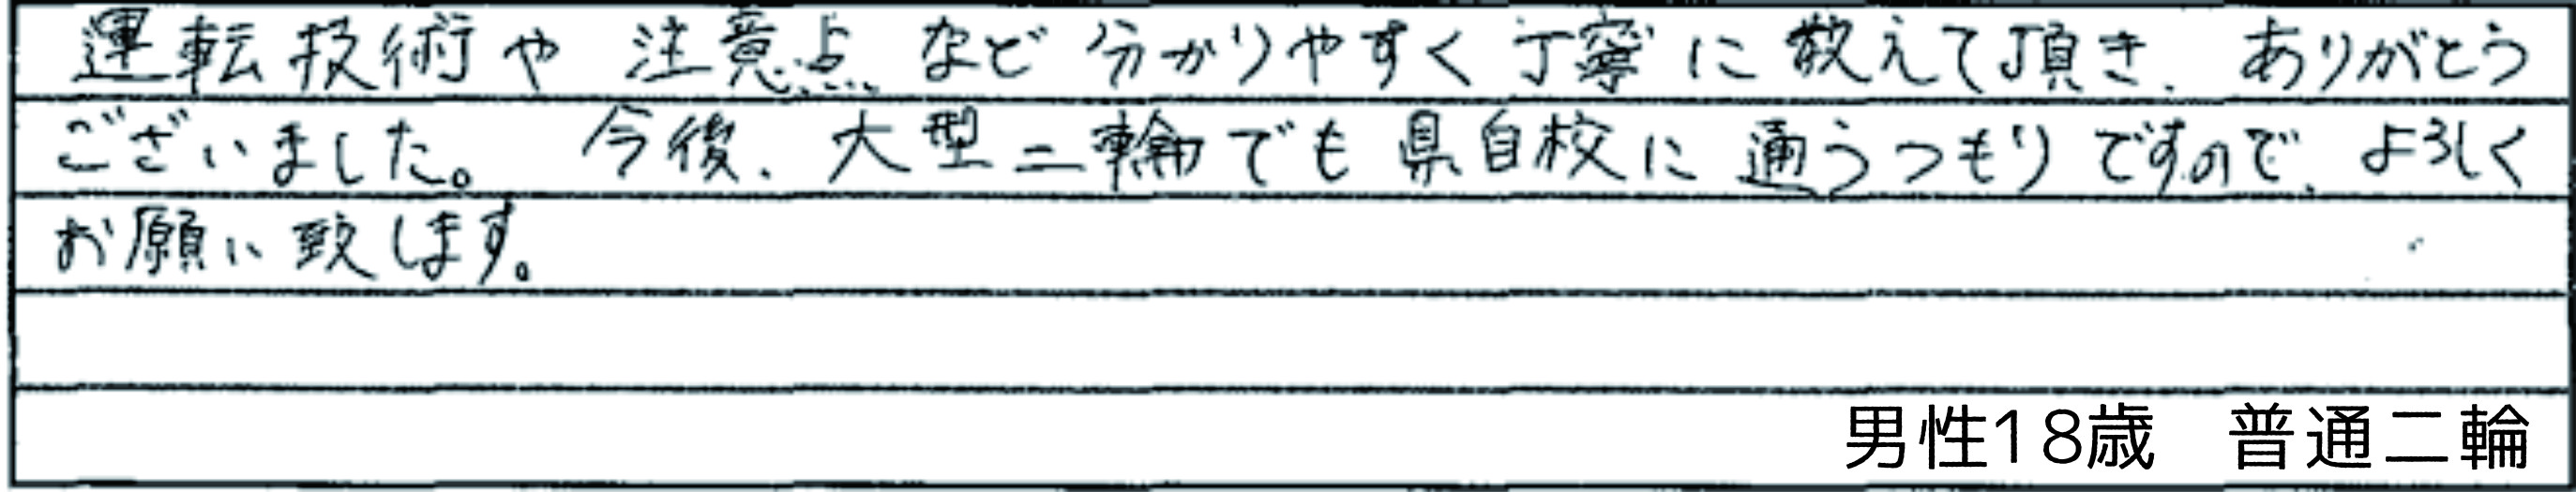 運転技術や注意点など分かりやすく丁寧に教えて頂き、ありがとう
ございました。 今後、大型二輪でも県自校に通うつもりですので、よろしく
お願い致します。
男性18歳 普通二輪